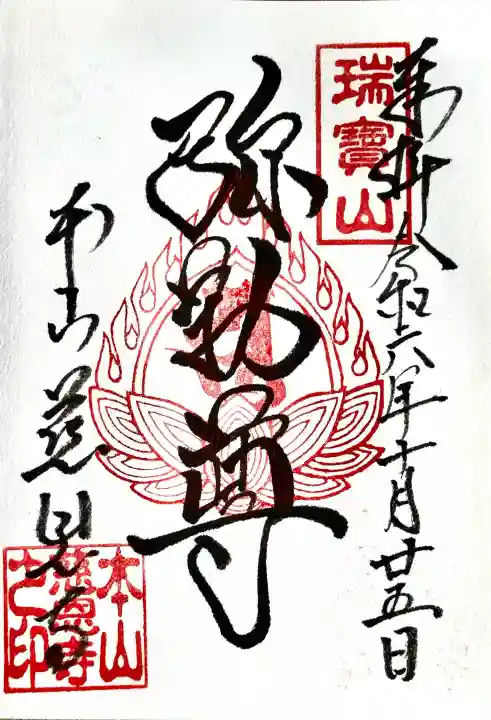 奉拝
令和六年十月廿五日
瑞寶山
弥勒尊
本山慈恩寺
本山
慈恩寺
之印